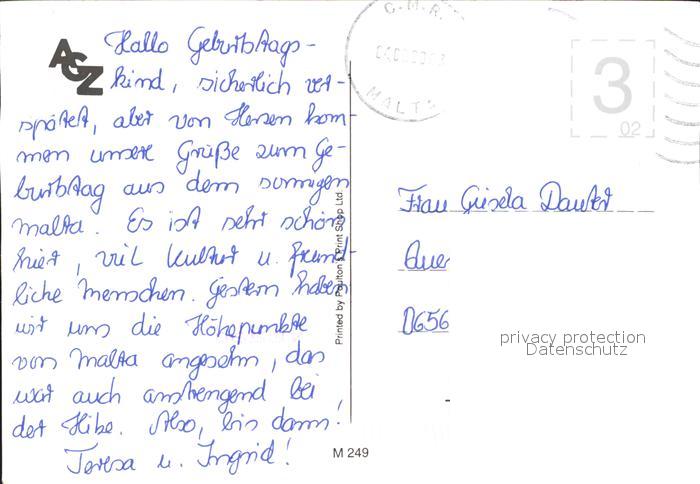 AGZ
Hallo Geburtstags-
kind, sicherlich ver-
spätet, aber von Herzen kom-
men unsere Grüße zum Ge-
burtstag aus dem sonnigen
Malta. Es ist sehr schön
hier, viel Kultur u. freund-
liche Menschen. Gestern haben
wir uns die Höhepunkte
von Malta angesehn, das
war auch anstrengend bei
der Hitze. Also, bis dann!
Teresa u. Ingrid!
Printed by Poulton's Print Shop Ltd.
M 249
C.M.R.
MALTA
3
02
Frau Gisela Dauter
Aue
D656
privacy protection
Datenschutz